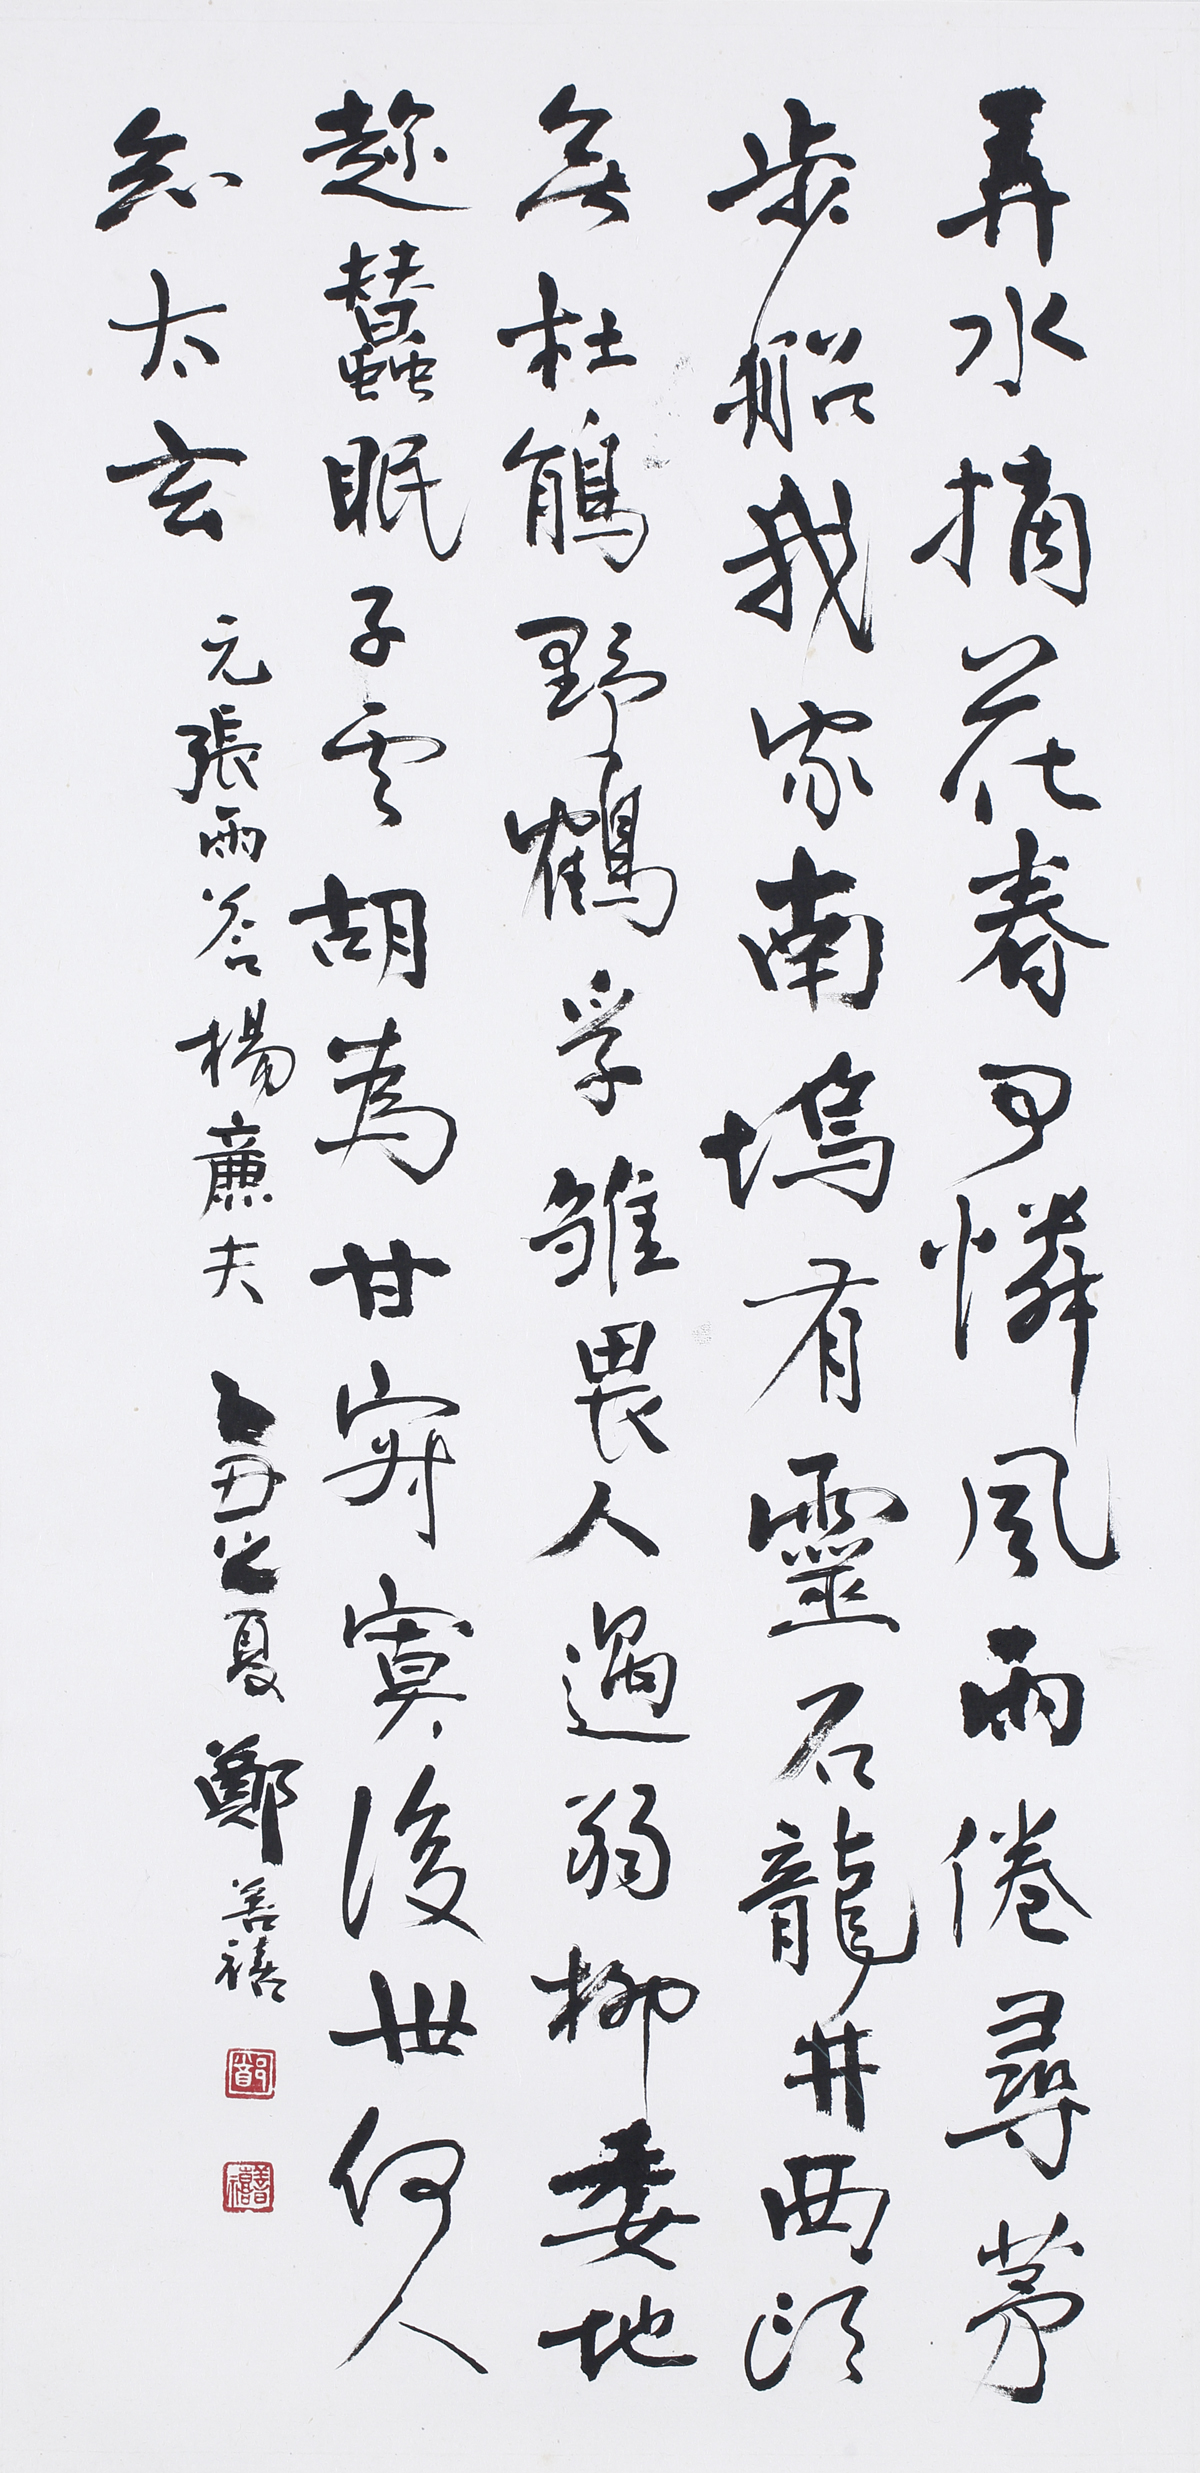 弄水摘花春可憐風雨倦尋茅
步船我家南塢有靈石龍井西頭
無杜鵑野鶴孚雛畏人過弱柳委地
趁蠶眠子雲胡為甘寂寞後世何人
知太玄
元張雨答楊廉夫 乙丑之夏 鄭善禧
善禧